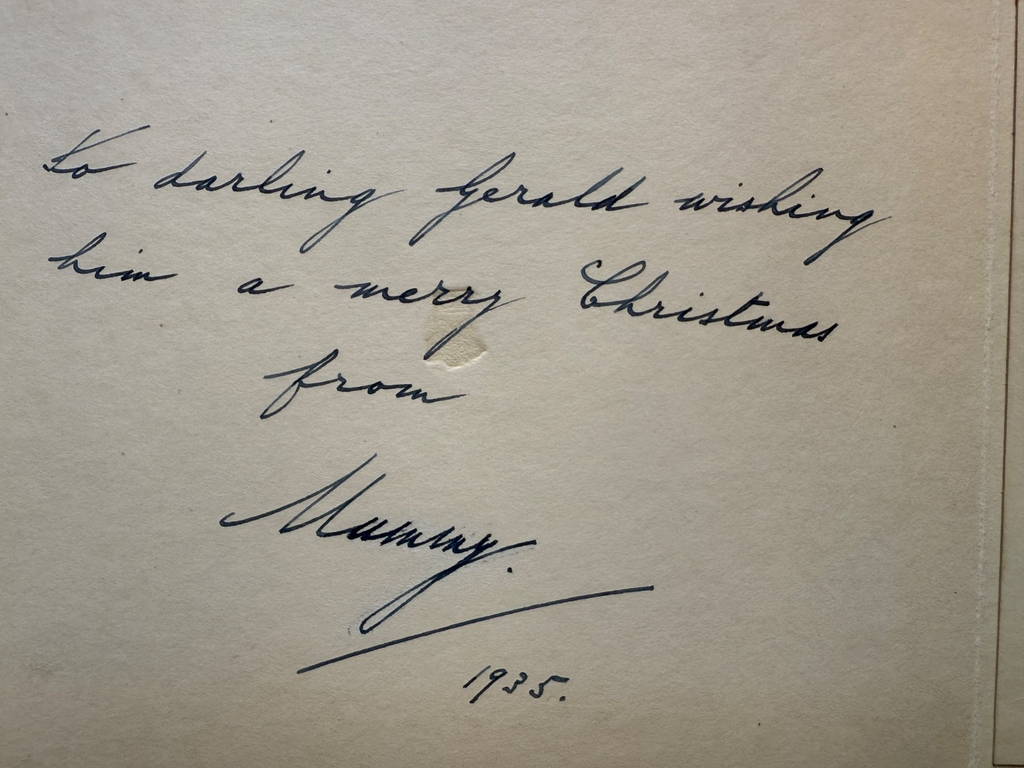 To darling Gerald wishing
him a merry Christmas
from
Mummy.
1935.